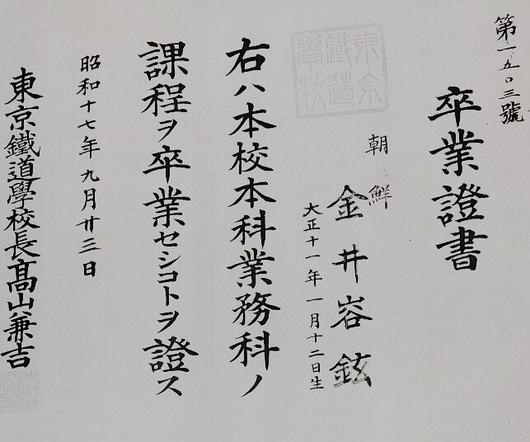 第一五〇三號
卒業證書
朝鮮
金井容鉉
大正十一年一月十二日生
右ハ本校本科業務科ノ
課程ヲ卒業セシコトヲ證ス
昭和十七年九月廿三日
東京鐵道學校長髙山兼吉
東京
鐵道
學校